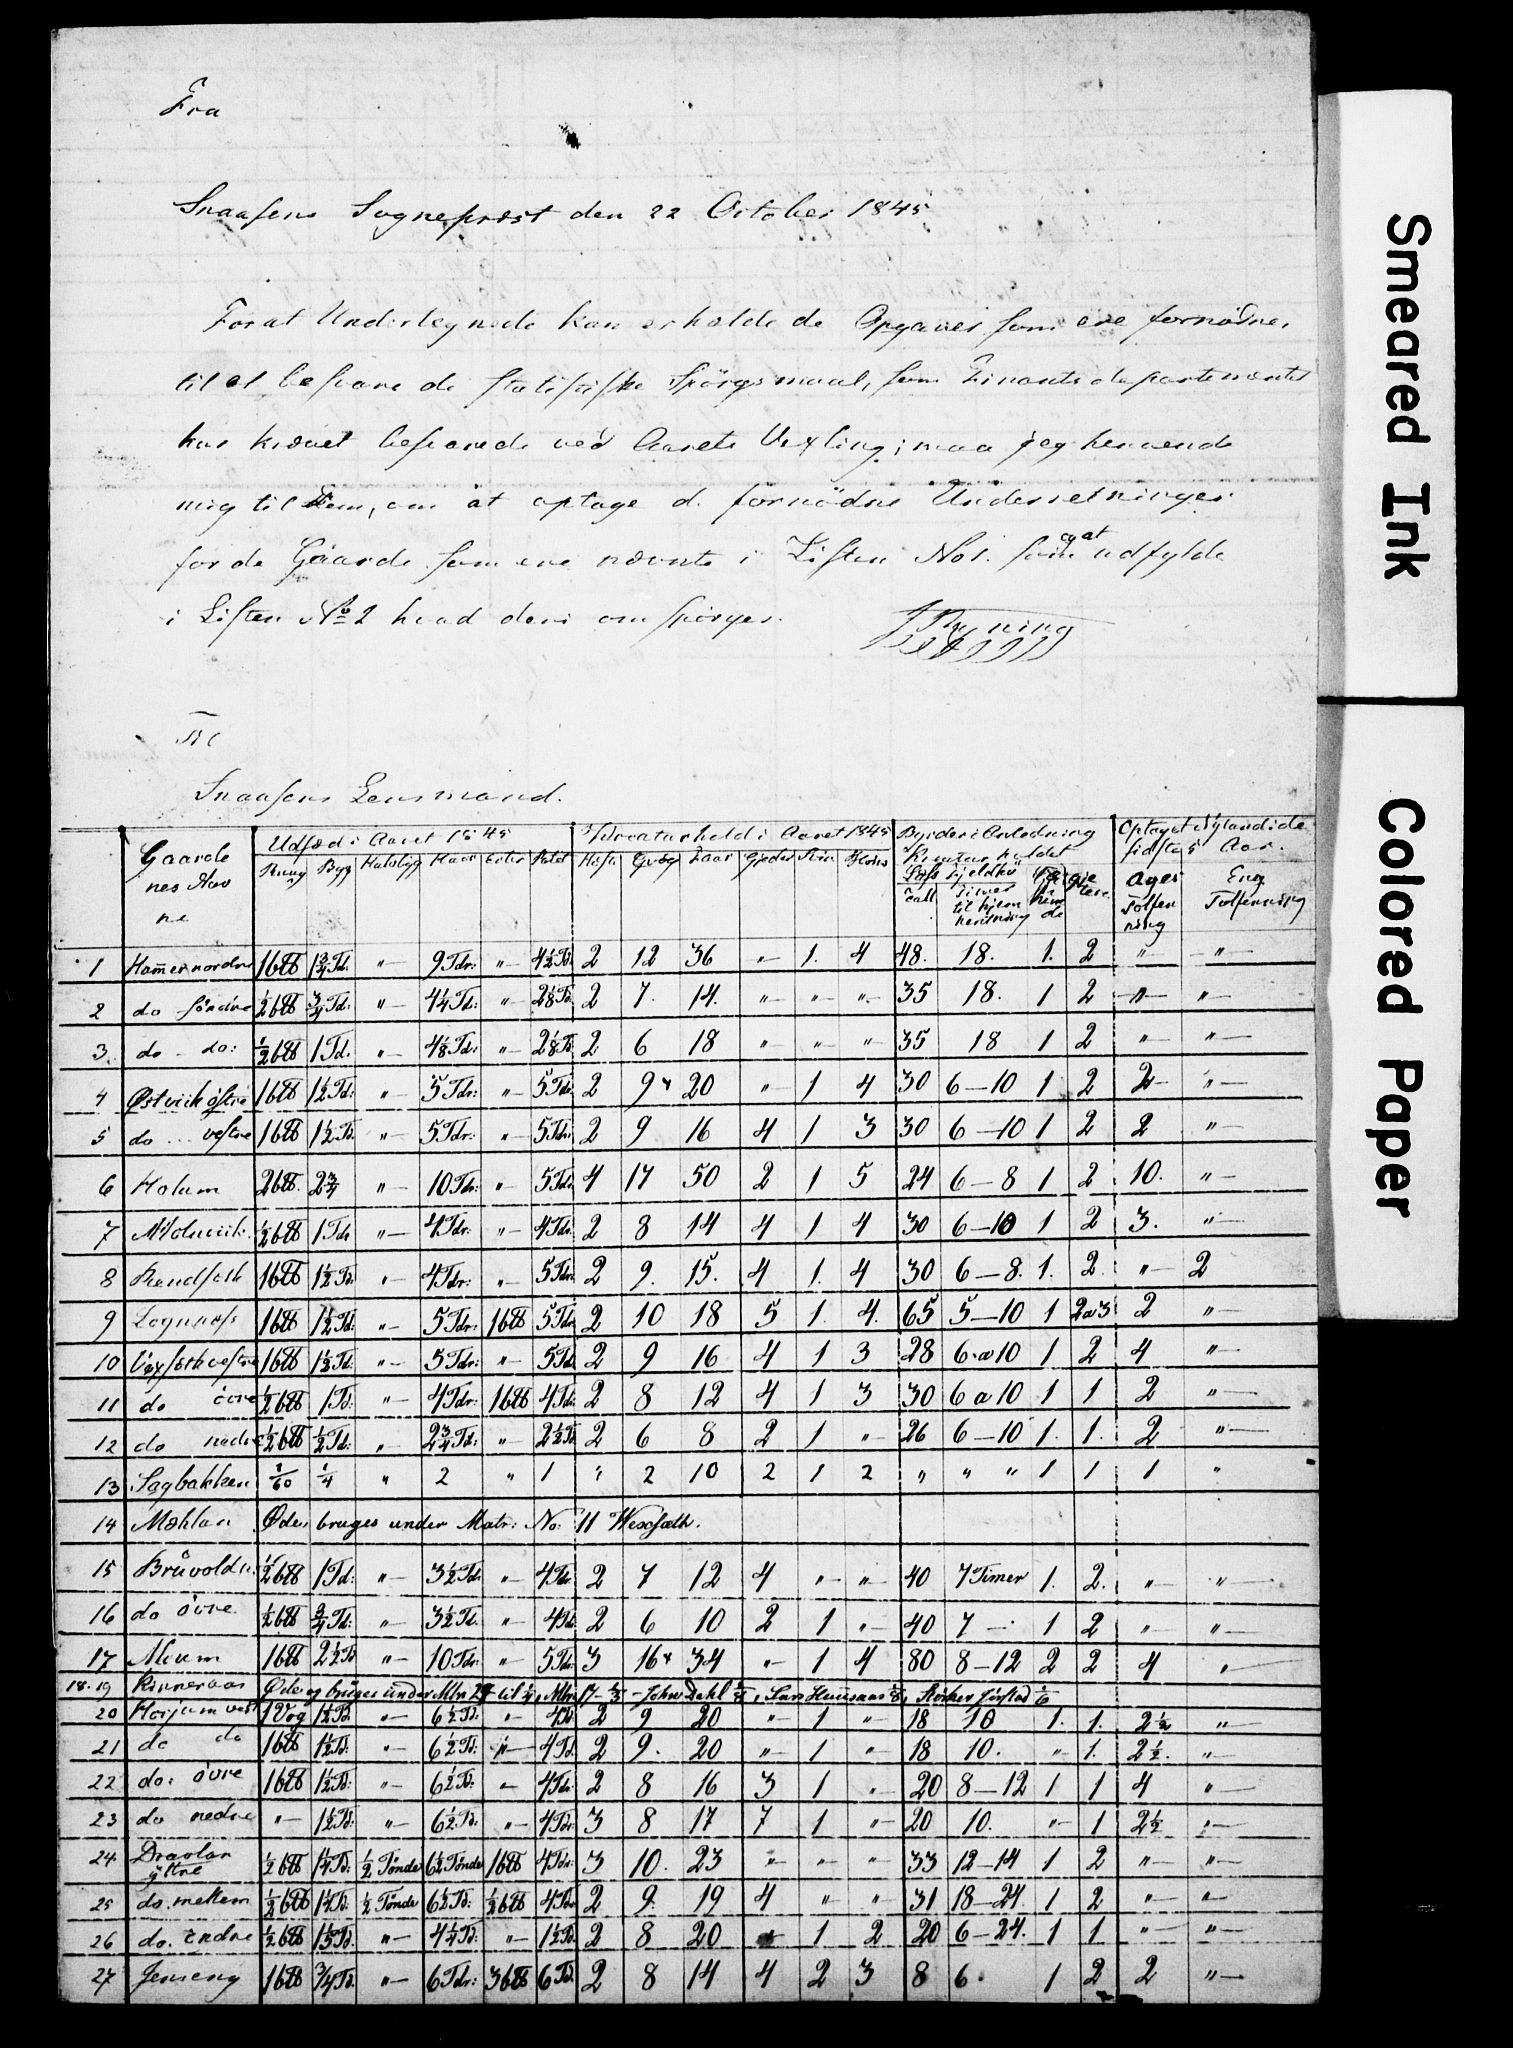 Fra
Snaasens Sogneprest den 22 October 1845
Forat Undertegnede kan erholde de Opgaver som ere fornødne,
til at besvare de statistiske Spörgsmaal, som Finantsdepartementet
har krævet besvarede ved Aarets Vexling; maa jeg henvende
mig til Dem, om at optage de fornödne Underretninger
for de Gaarde som ere nævnte i Listen No 1. som og at udfylde
i Listen No 2 hvad deri om spörges.
Til
Snaasens Lensmand.
Gaarde nes Nav ne | Udsæd i Aaret 1845 | Kreaturhold i Aaret 1845 | Byrder i Anledning Kreaturholdet | Optaget Nylandi de sidste 5 Aar.
Rug | Byg | Havre | Erter | Potet | Heste | Qvæg | Faar | Geder | Sviin | Ager Tolfening | Eng Tolfening
1 Hammer nordre 16 ℔ 1 3/4 Td. " 9 Tdr: " 4 1/2 Td. 2 12 36 " 1. 4 48. 18. 1. 2 " "
2 do söndre 1/2 6 ℔ 3/4 Td: " 4 1/4 Td: " 2 1/8 Td. 2 7. 14. " " " 35 18. 1 2 " "
3. do - do: 1/2 6 ℔ 1 Td. " 4 1/8 Td: " 2 1/8 Td. 2 6 18 " " " 35 18 1 2 " "
4 Østviik östre 16 ℔ 1 1/2 Td: " 5 Tdr: " 5 Tdr. 2 9 20 " 1 4 30 6-10 1 2 2 "
5 do ... vestre 16 ℔ 1 1/2 Td. " 5 Tdr: " 5 Tdr. 2 9 16 4 1 3 30 6-10 1 2 2 "
6 Holum 26 ℔. 2 3/4 " 10 Tdr: " 5 Tdr. 4 17 50 2 1 5 24 6-8 1 2 10. "
7 Molnviik. 1/2 6 ℔ 1 Td. " 4 Tdr. " 4 Tdr. 2 8 14 4 1 4 30 6-10 1 2 3. "
8 16 ℔ 1 1/2 Td. " 4 Tdr: " 5 Tdr. 2 9. 15. 4 1. 4 30 6-8. 1. 2. " 2
9 16 ℔ 1 1/2 Td. " 5 Tdr. 16 ℔ 5 Td. 2 10 18 5 1. 4. 65 5-10 1 2 a 3 2 "
10 vestre 16 ℔ 1 1/2 Td. " 5 Tdr: " 5 Td. 2 9 16 4 1 3 28 6 a 10 1 2 4 "
11 do övre 1/2 6 ℔ 1 Td. " 4 Tdr: 16 ℔ 4 Td. 2 8 12 4 1 3 30 6 a 10 1 1 2 "
12 do nedre 1/2 6 ℔ 1/2 Td: " 2 3/4 Td: " 2 1/2 Td. 2 6 8 2 1 " 26 6-10 1. 1. 2 "
13 Sagbakken 1/60 1/4 " 2 " 1 " 2 10 2 1 2 " " " 1 1 1 "
14 Mæhlan Øde, bruges under Matr: No: 11 Wexsæth.
15 Brüvold n. 1/2 6 ℔ 1 Td: " 3 1/2 Td. " 4 Tdr. 2 7 12 4 " " 40 7 Timer 1. 2. " "
16 do övre 1/2 6 ℔ 3/4 Td: " 3 1/2 Td. " 4 Td. 2 6 10 2 1 " 40 7 - 1 2 " "
17 Moum 16 ℔ 2 1/2 Td " 10 Tdr: " 5 Tdr: 3 16 34 " 1 4 80 8-12 2 2 4 "
18-19 Rinneraas Øde og bruges under
20 Horjum vest 1 Vog 1 1/2 Td. " 6 1/2 Td. " 4 Td 2 9 20 " 1 " 18 10 1. 1. 2 1/2 "
21 do do 16 ℔ 1 1/2 Td. " 6 1/2 Td: " 4 Td. 2 9. 20 " 1 " 18 10. " 1. 2 1/2. "
22 do: övre 16 ℔ 1 1/2 Td. " 6 1/2 Td. " 4 Tdr. 2 8 16 3 1 " 20 8-12 1 1 4 "
23 do nedre " 1 1/2 Td. " 6 1/2 Td. " 4 Td. 3 8 17 7 1 " 20 10. " 1 2 1/2 "
24 Dravlan yttre 1/2 6 ℔ 1 1/4 Td. 1/2 Tønde 6 1/2 Tønde 16 ℔ 4 Tdr: 3 10. 23 " " " 33 12-14 1 2 " "
25 do. mellem 1/2 6 ℔ 1 1/4 Td. 1/2 Tønde 6 1/2 Td. 1/2 6 ℔ 4 Td. 2 9. 19 4 " " 31 18-24. 1 2 " "
26 do. indre 1/2 6 ℔ 1 1/5 Td. " 4 1/4 Td. " 1 1/2 Td. 2 8 20 1 2 20 6-24. 1 1 " "
27 Jemseng 16 ℔ 3/4 Td. " 6 Tdr: 36 ℔ 6 Td. 2 8 14 4 2 3 8 6. 1 2 2 "
Smeared Ink
Colored Paper